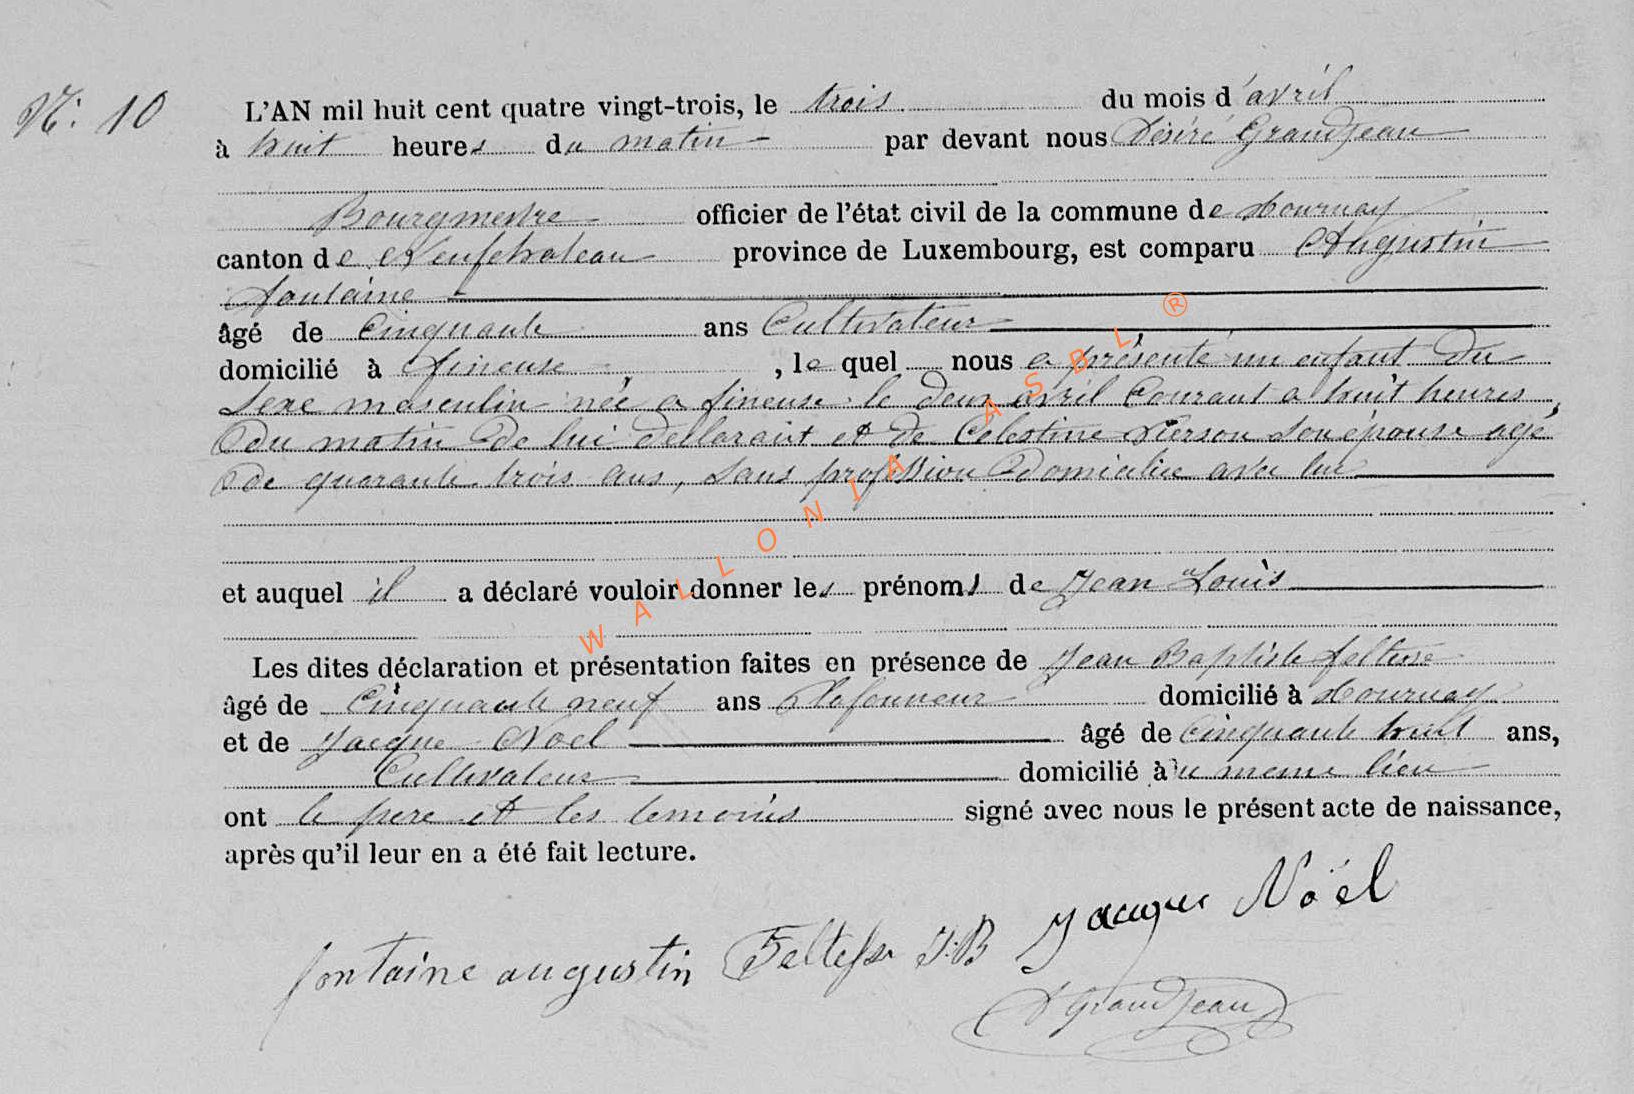 N: 10
L'AN mil huit cent quatre vingt-trois, le trois du mois d'avril
à huit heures du matin par devant nous Désiré Grandjean
Bourgmestre officier de l'état civil de la commune de Tournay
canton de Neufchateau province de Luxembourg, est comparu Augustin
fontaine
âgé de Cinquante ans Cultivateur
domicilié à fineuse, le quel nous a présenté un enfant du
Sexe masculin née a fineuse le deux avril Courant a huit heures
du matin de lui déclarant et de Célestine Pierson son épouse agé
de quarante trois ans, sans profession domiciliée avec lui
et auquel il a déclaré vouloir donner les prénoms de Jean Louis
Les dites déclaration et présentation faites en présence de Jean Baptiste feltesse
âgé de Cinquante neuf ans Plafonneur domicilié à Tournay
et de Jacque Noël âgé de Cinquante huit ans,
Cultivateur domicilié au meme lieu
ont le pere et les temoins signé avec nous le présent acte de naissance,
après qu'il leur en a été fait lecture.
fontaine augustin Feltesse J.B Jacques Noël
D Grandjean
WALLONIA ASBL ®